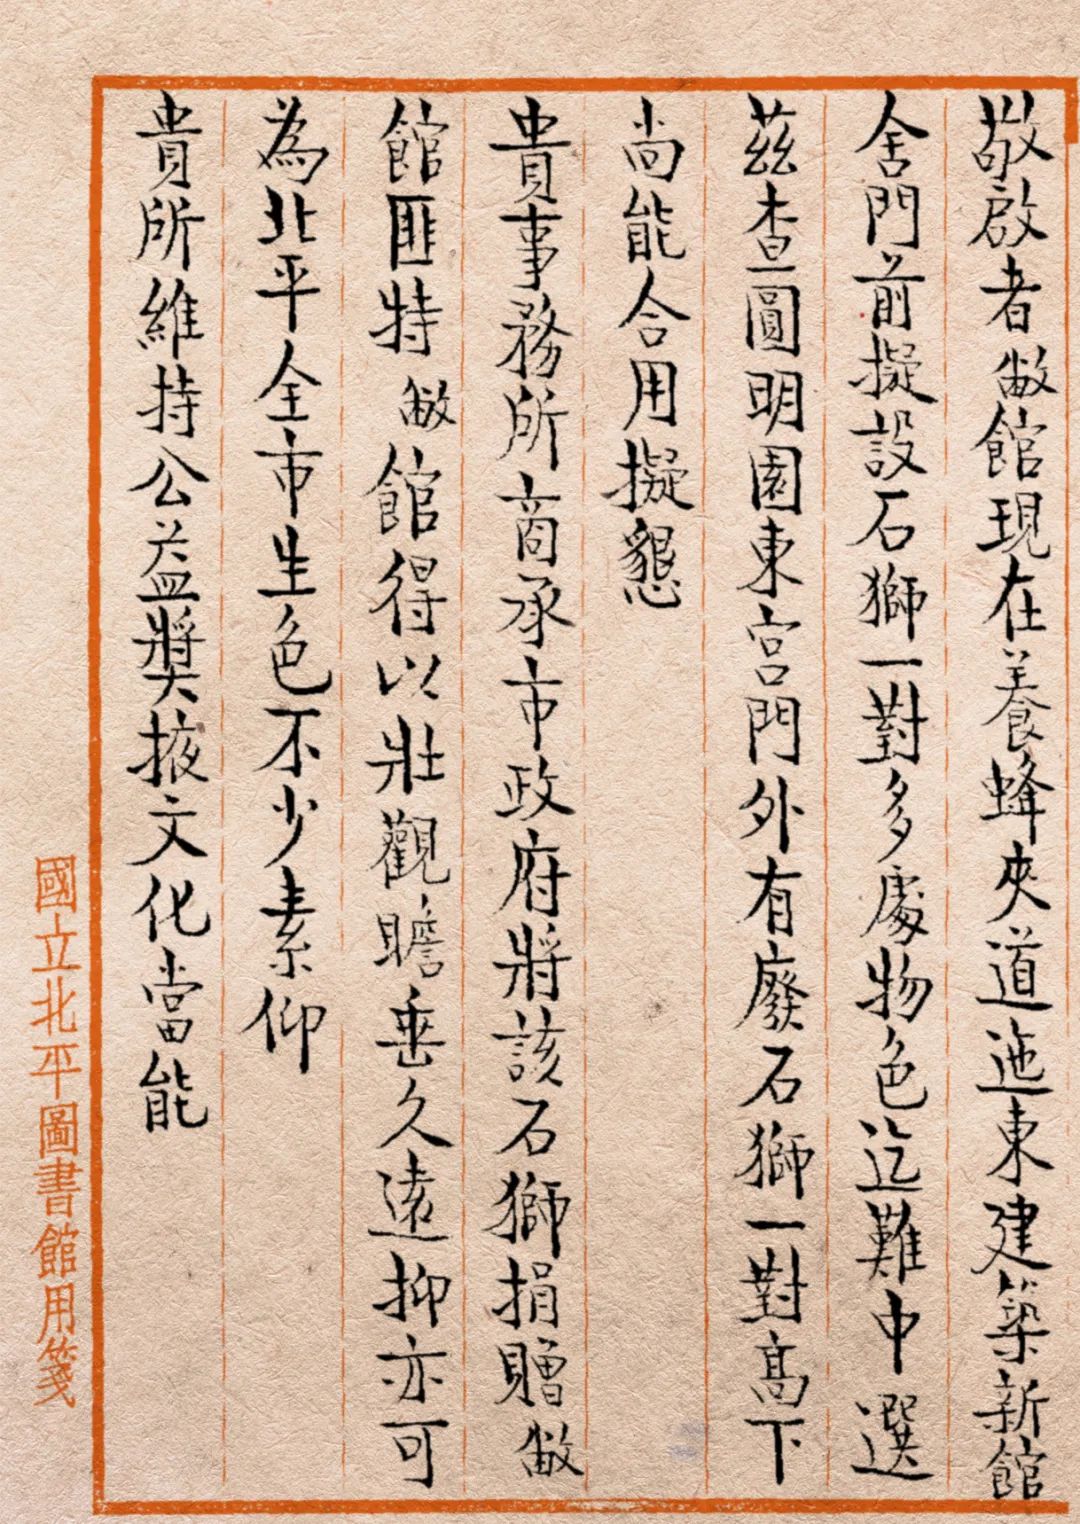 敬啟者敝館現在養蜂夾道迤東建築新館
舍門前擬設石獅一對多處物色迄難中選
茲查圓明園東宮門外有廢石獅一對高下
尚能合用擬懇
貴事務所商承市政府將該石獅捐贈敝
館匪特敝館得以壯觀瞻垂久遠抑亦可
為北平全市生色不少素仰
貴所維持公益獎掖文化當能
國立北平圖書館用箋